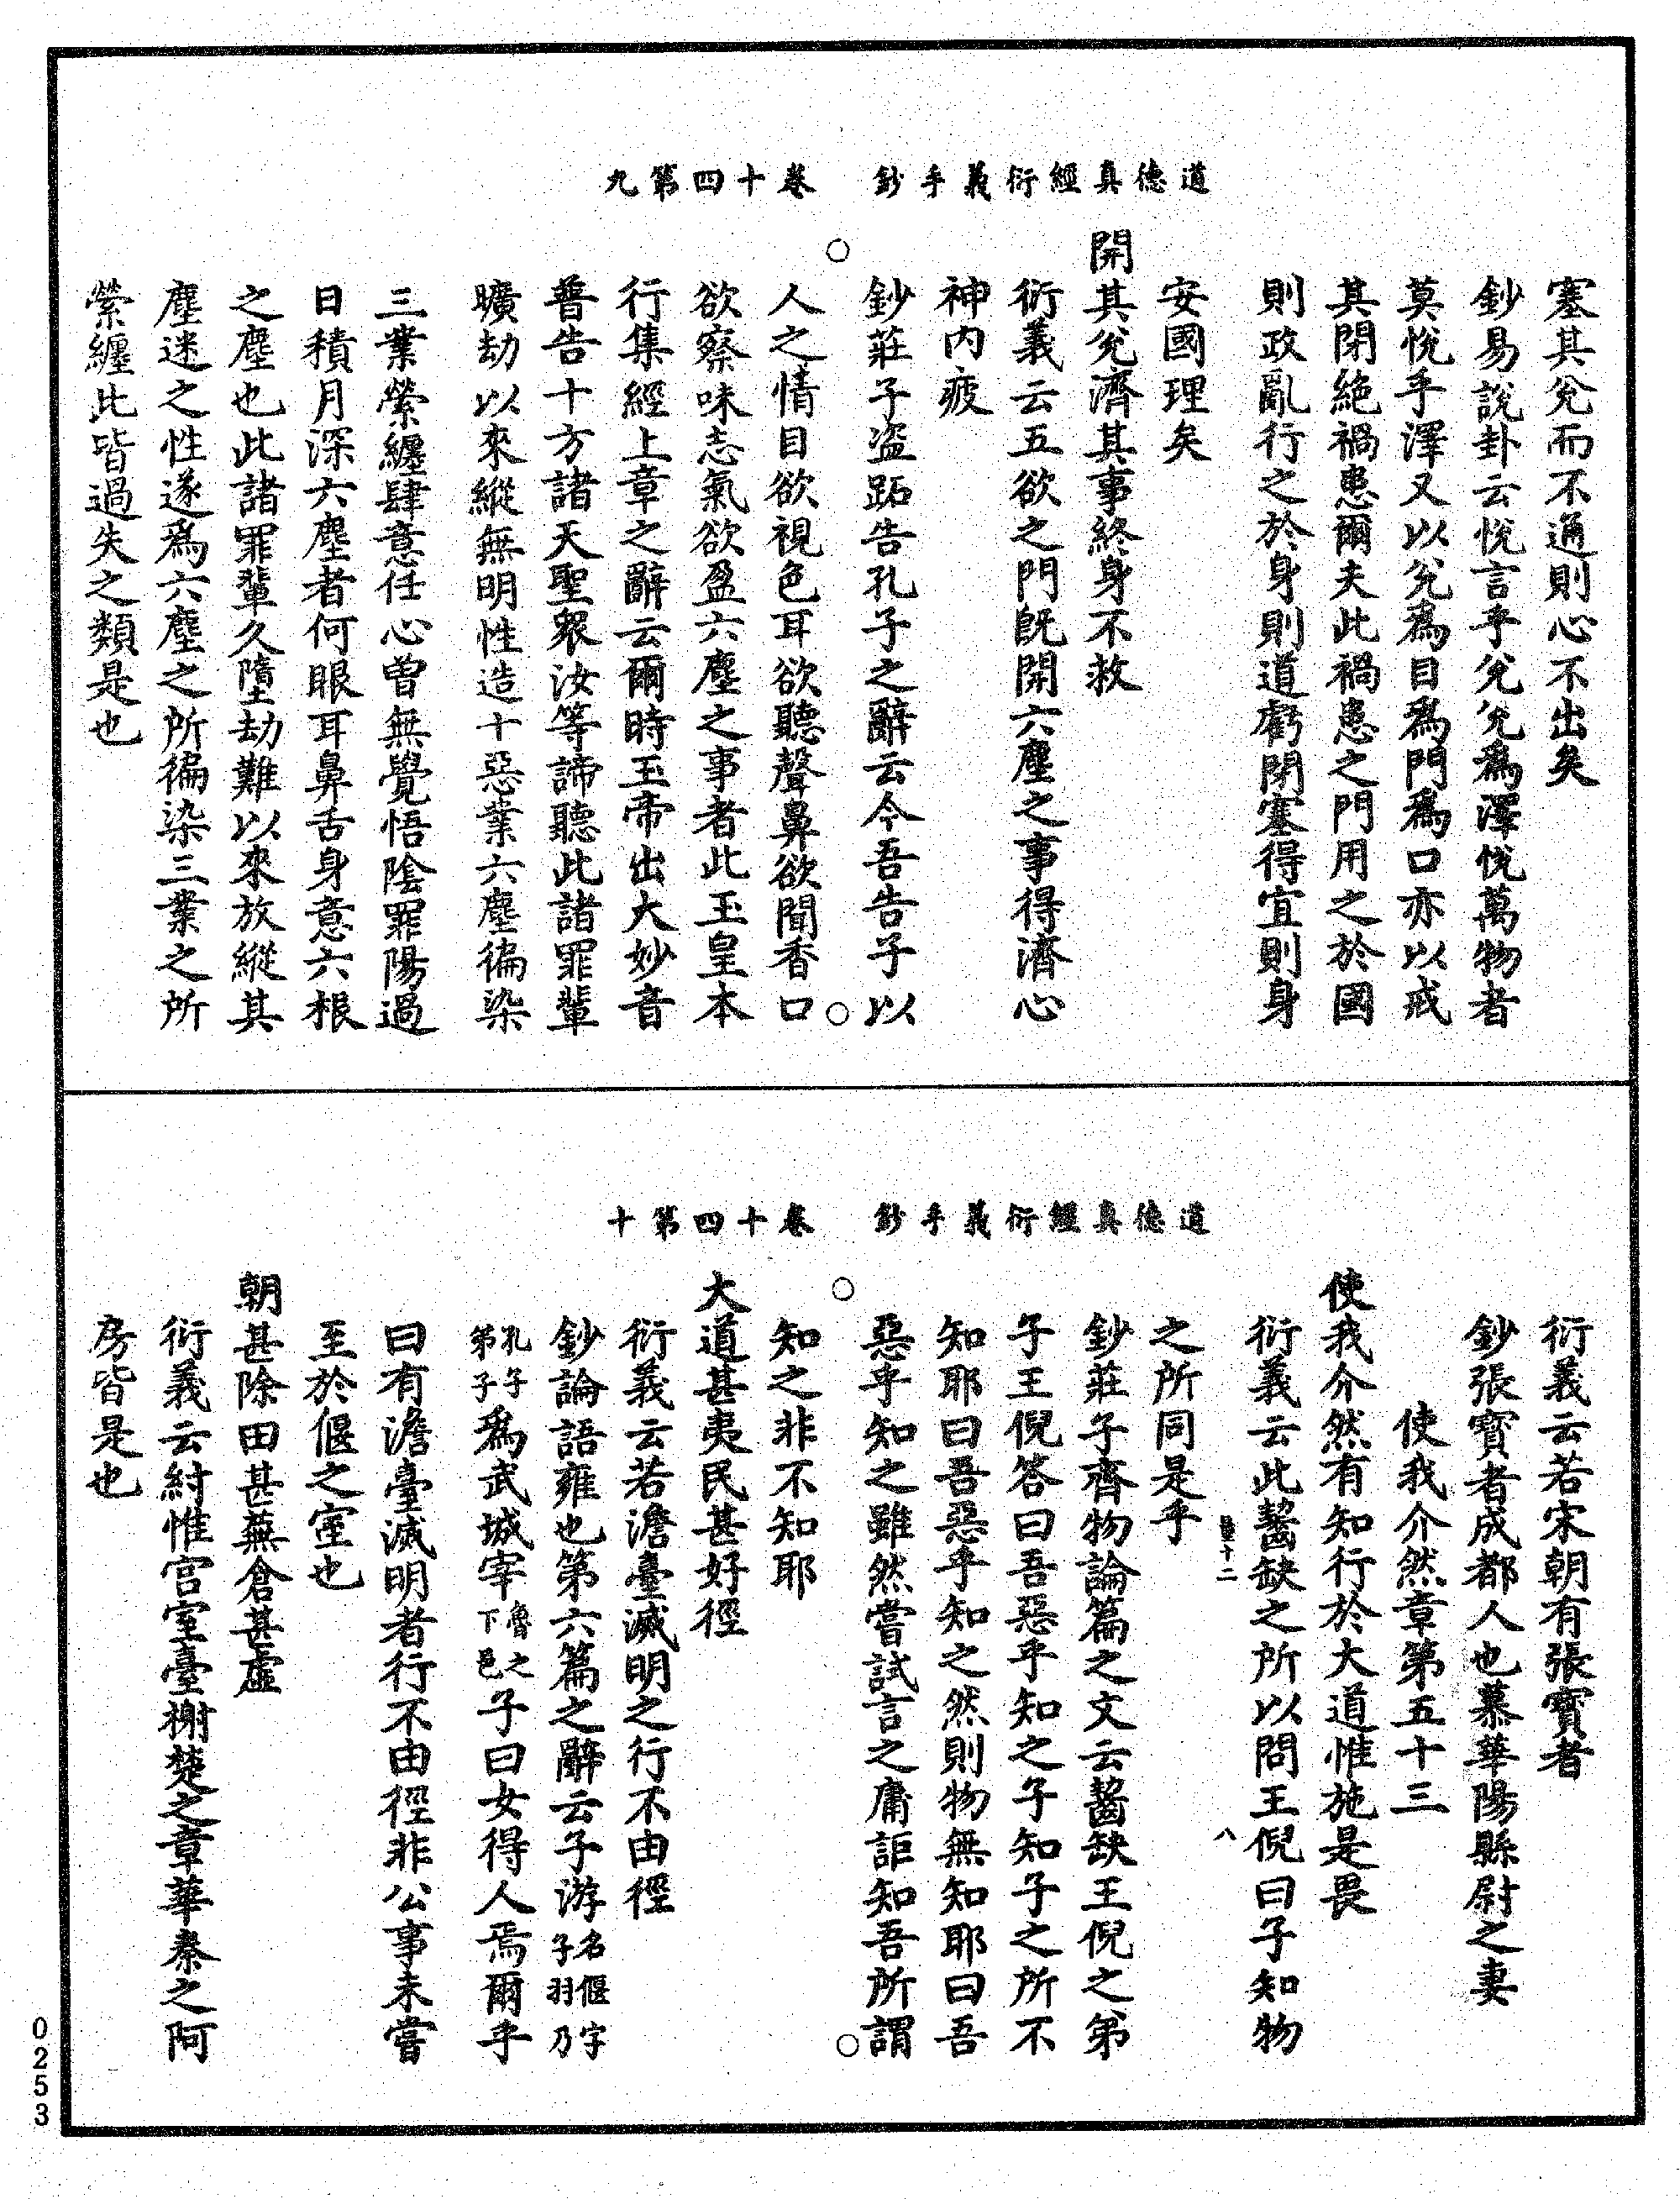 道德真經衍義手鈔　卷十四第九
塞其兌而不通則心不出矣
鈔易說卦云悅言乎兌兌爲澤悅萬物者
莫悅乎澤又以兌爲目爲門爲口亦以戒
其閉絕禍患爾夫此禍患之門用之於國
則政亂行之於身則道虧閉塞得宜則身
安國理矣
開其兌濟其事終身不救
衍義云五欲之門旣開六塵之事得濟心
神內疲
鈔莊子盜跖告孔子之辭云今吾告子以
人之情目欲視色耳欲聽聲鼻欲聞香口
欲察味志氣欲盈六塵之事者此玉皇本
行集經上章之辭云爾時玉帝出大妙音
普告十方諸天聖眾汝等諦聽此諸罪輩
曠劫以來縱無明性造十惡業六塵徧染
三業縈纏肆意任心曾無覺悟陰罪陽過
日積月深六塵者何眼耳鼻舌身意六根
之塵也此諸罪輩久墮劫難以來放縱其
塵迷之性遂爲六塵之所徧染三業之所
縈纏此皆過失之類是也
道德真經衍義手鈔　卷十四第十
衍義云若宋朝有張寶者
鈔張寶者成都人也慕華陽縣尉之妻
使我介然章第五十三
使我介然有知行於大道惟施是畏
衍義云此齧缺之所以問王倪曰子知物
十二　八
之所同是乎
鈔莊子齊物論篇之文云齧缺王倪之弟
子王倪答曰吾惡乎知之子知子之所不
知耶曰吾惡乎知之然則物無知耶曰吾
惡乎知之雖然嘗試言之庸詎知吾所謂
知之非不知耶
大道甚夷民甚好徑
衍義云若澹臺滅明之行不由徑
鈔論語雍也第六篇之辭云子游名偃字子羽乃
孔子弟子爲武城宰魯之下邑子曰女得人焉爾乎
曰有澹臺滅明者行不由徑非公事未嘗
至於偃之室也
朝甚除田甚蕪倉甚虛
衍義云紂惟宮室臺榭楚之章華秦之阿
房皆是也
0253